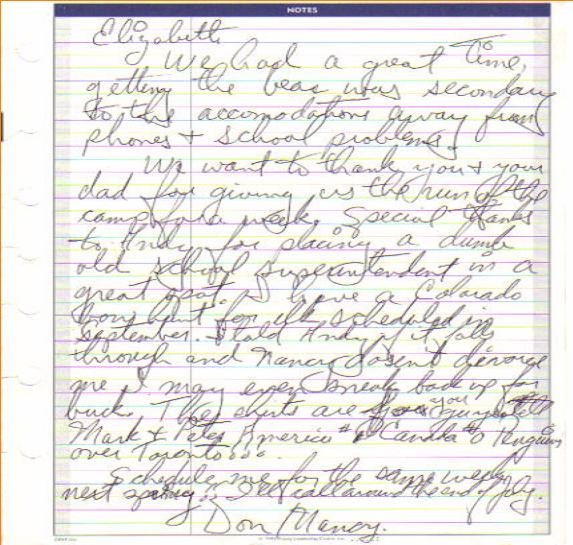 NOTES
Elizabeth
We had a great time,
getting the bear was secondary
to the accomodations away from
phones + school problems.
We want to thank you + your
dad for giving us the run of the
camp for a week. Special thanks
to Andy for placing a dumb
old school superintendent in a
great spot. I have a Colorado
bow hunt for elk scheduled in
September. I told Andy if it falls
through and Nancy dosent divorce
me I may even sneak back up for
bucks. The shirts are for you guys
Mark + Pete, America # Canada # 0 Penguins
over Toronto...
Schedule me for the same week
next spring. I'll call around the end of July.
Don Mancy.